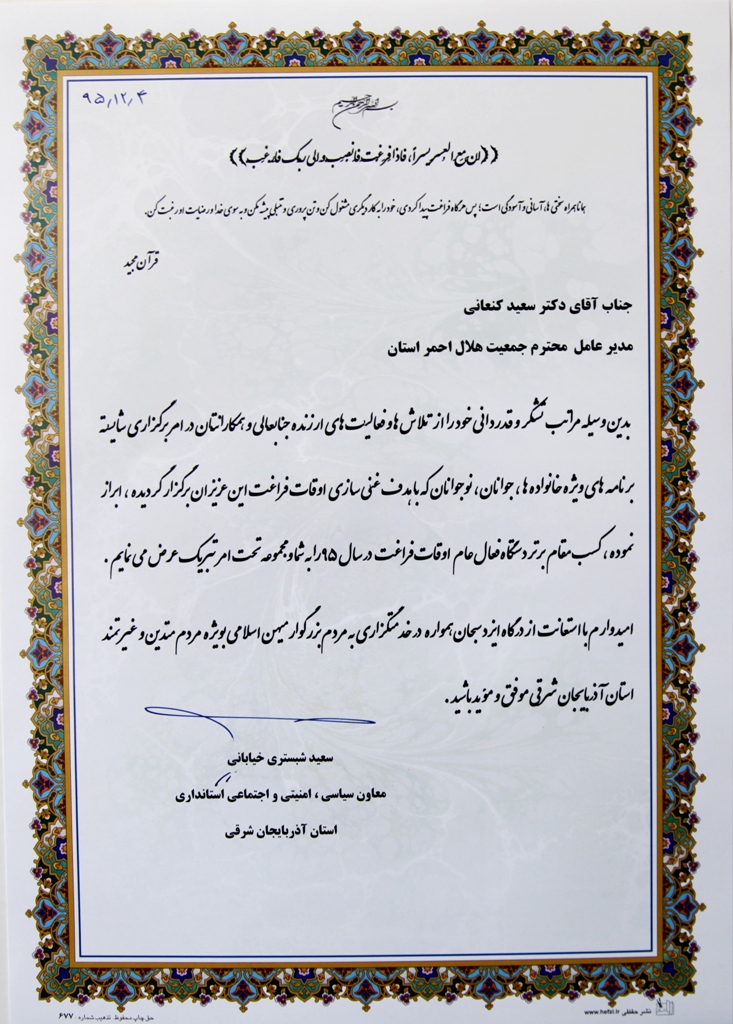 ۹۵٫۱۲٫۴
بسم الله الرحمن الرحیم
((ان مع العسر یسراً، فاذا فرغت فانصب و الی ربک فارغب))
همانا همراه سختی ها، آسانی و آسودگی است؛ پس هرگاه فراغت پیدا کردی، خود را به کار دیگری مشغول کن و تن پروری و تنبلی پیشه مکن و به سوی خدا و رضایت او رغبت کن.
قرآن مجید
جناب آقای دکتر سعید کنعانی
مدیر عامل محترم جمعیت هلال احمر استان
بدین وسیله مراتب تشکر و قدردانی خود را از تلاش ها و فعالیت های ارزنده جنابعالی و همکارانتان در امر برگزاری شایسته
برنامه های ویژه خانواده ها، جوانان، نوجوانان که با هدف غنی سازی اوقات فراغت این عزیزان برگزار گردیده، ابراز
نموده، کسب مقام برتر دستگاه فعال عام اوقات فراغت در سال ۹۵ را به شما و مجموعه تحت امر تبریک عرض می نمایم.
امیدوارم با استعانت از درگاه ایزد سبحان همواره در خدمتگزاری به مردم بزرگوار میهن اسلامی بویژه مردم متدین و غیرتمند
استان آذربایجان شرقی موفق و مؤید باشید.
سعید شبستری خیابانی
معاون سیاسی، امنیتی و اجتماعی استانداری
استان آذربایجان شرقی
نشر حفظی www.hefzi.ir
حق چاپ محفوظ تذهیب شماره: ۶۷۷